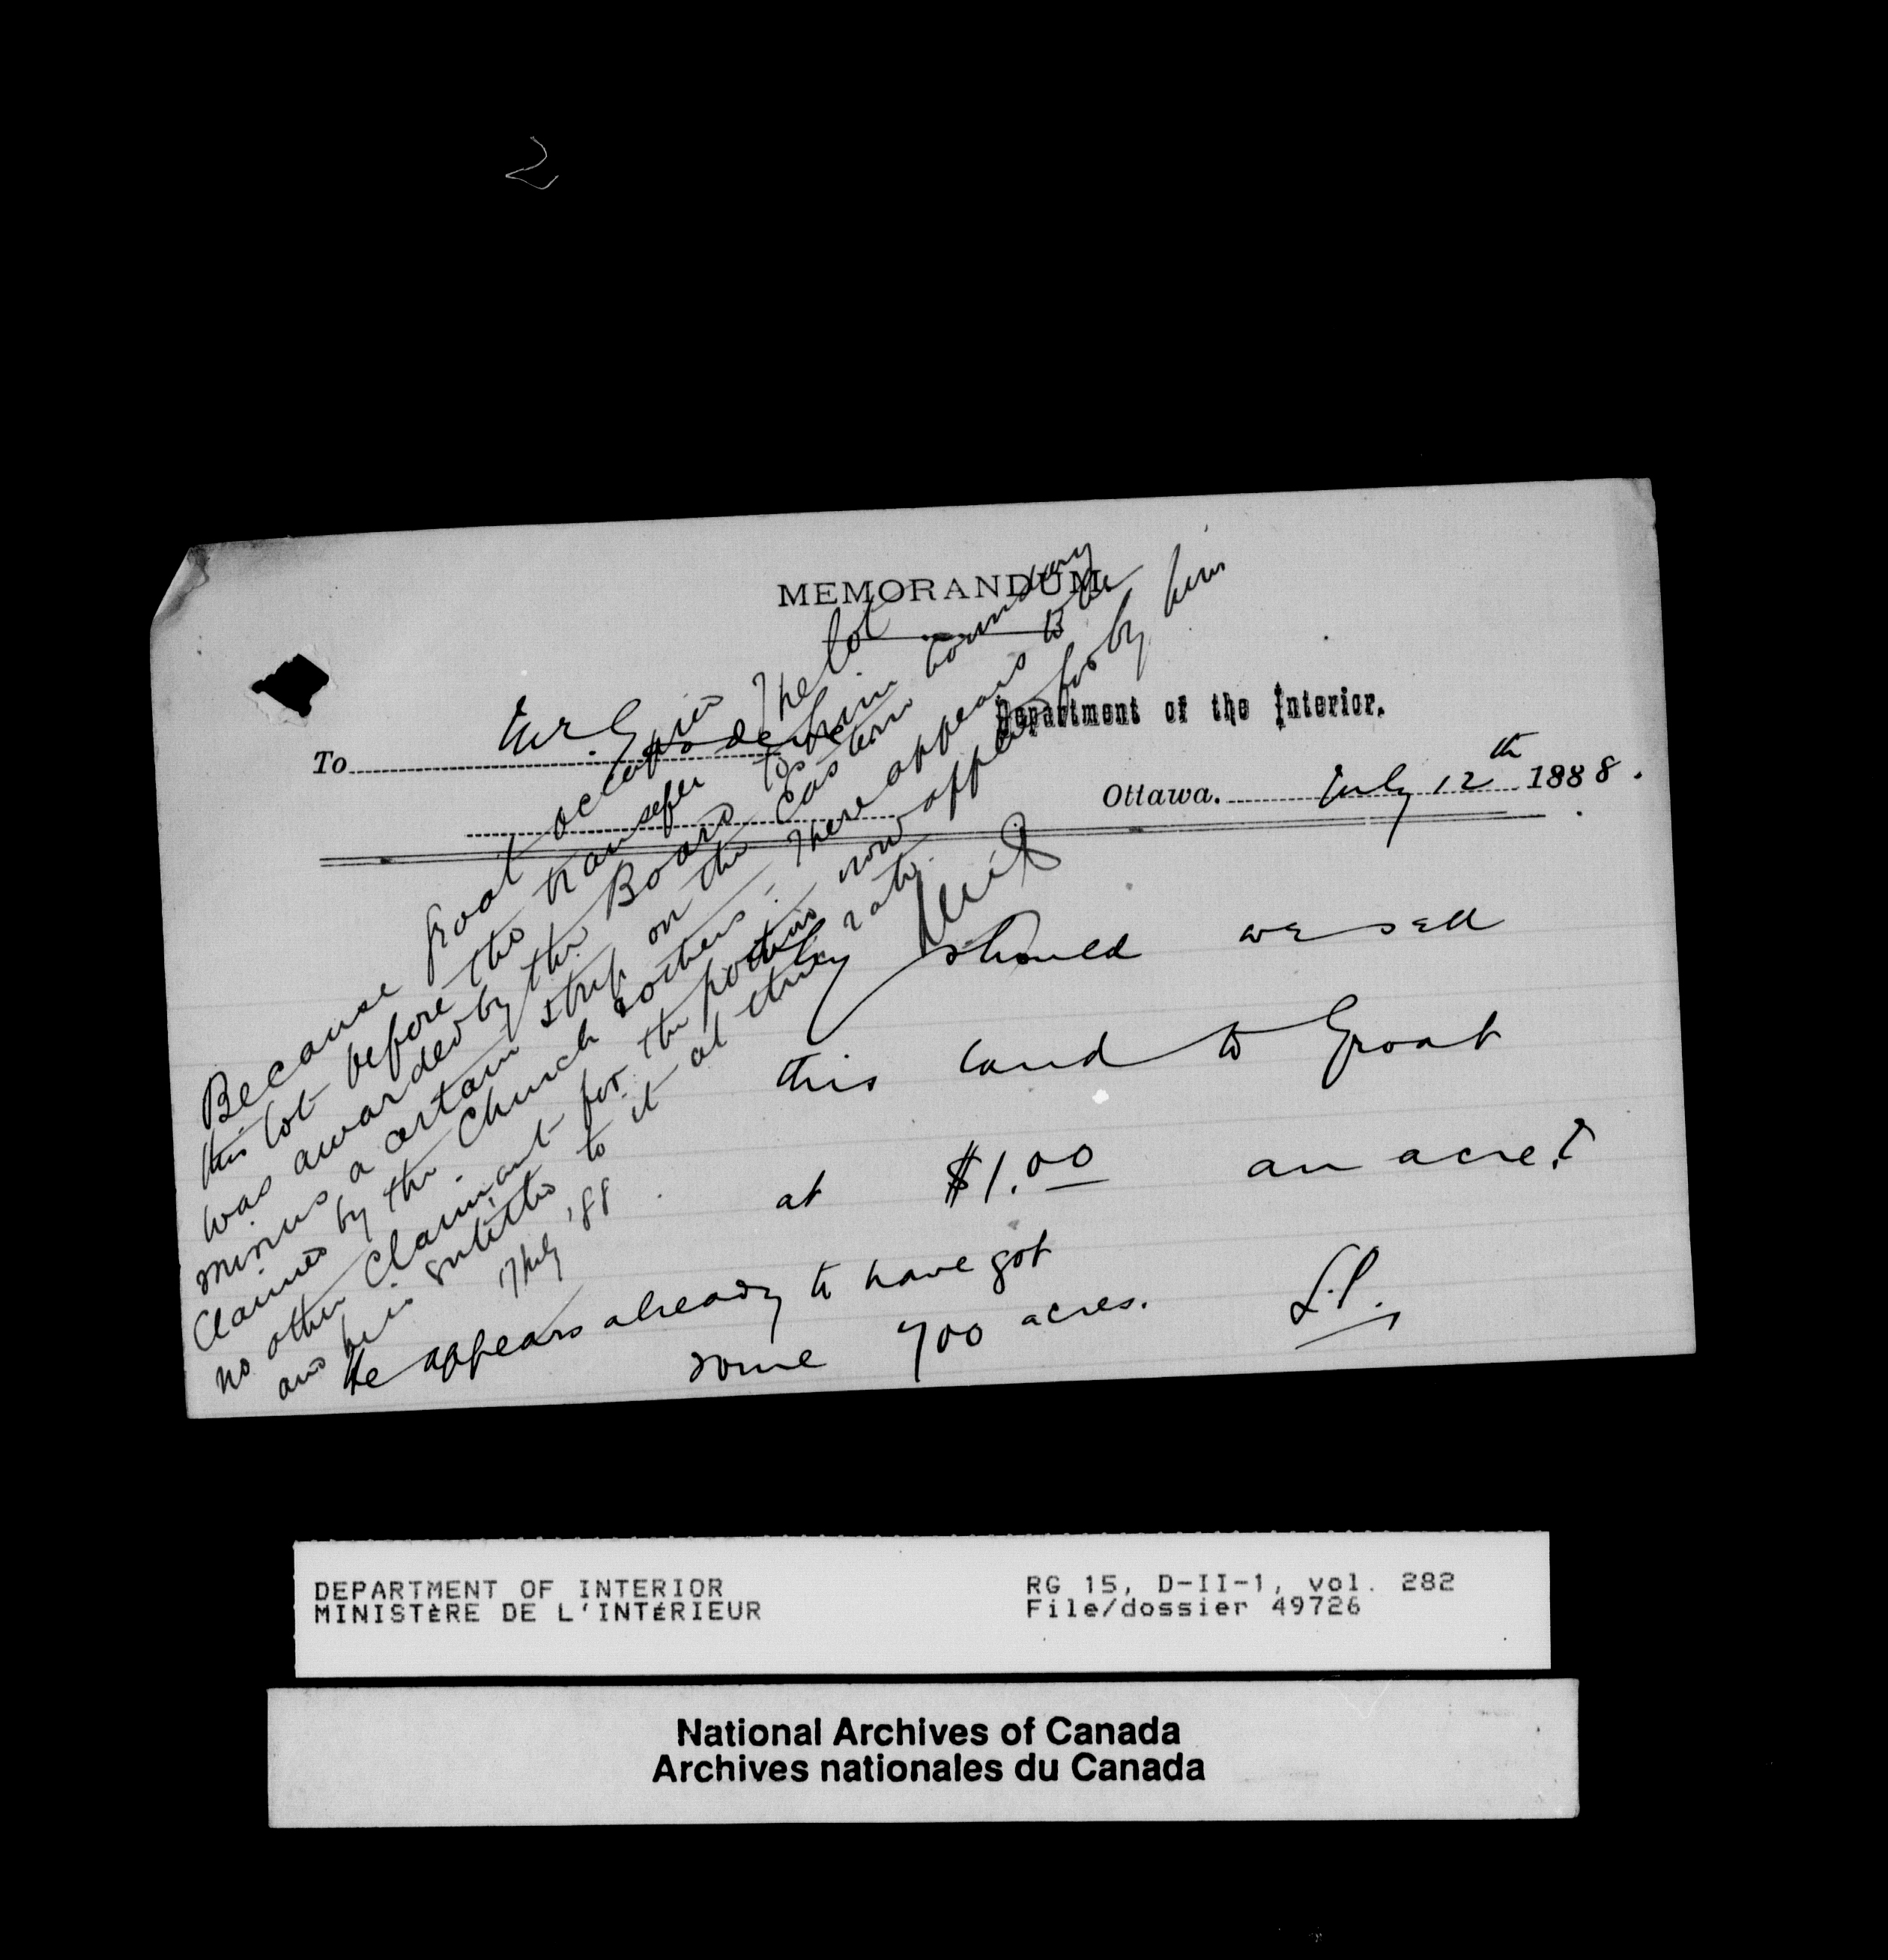 2
MEMORANDUM
Department of the Interior.
To Mr. Goodeve
Ottawa. July 12th 1888.
Why should we sell
this land to Groat
at $1.00 an acre?
He appears already to have got
some 700 acres.
Because Groat occupied
this lot before the transfer The lot
was awarded by the Board to him
minus a certain strip on the Eastern boundary
Claimed by the Church & others. There appears to be
no other Claimant for the portion now applied for by him
and he is entitled to it at any rate.
July '88
DEPARTMENT OF INTERIOR
MINISTÈRE DE L'INTÉRIEUR
RG 15, D-II-1, vol. 282
File/dossier 49726
National Archives of Canada
Archives nationales du Canada